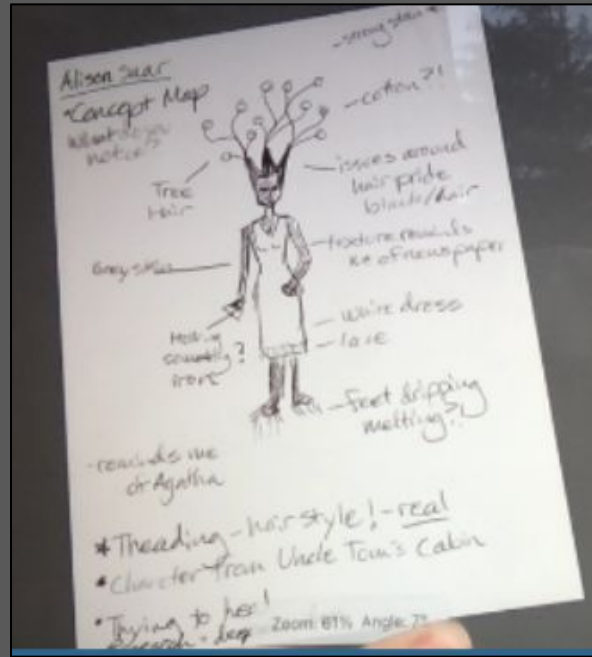 - strong stance
Alison Saar
*Concept Map
What do you
notice?
- cotton?!
Tree
Hair
- issues around
hair pride
black/hair
- texture reminds
me of newspaper
Grey skin
- white dress
- lace
Holding
something?
- feet dripping
melting?!
- reminds me
of Agatha
* Threading - hair style! - real
• Character from Uncle Tom's Cabin
• Trying to hee!
deep
Zoom: 61% Angle: 7°